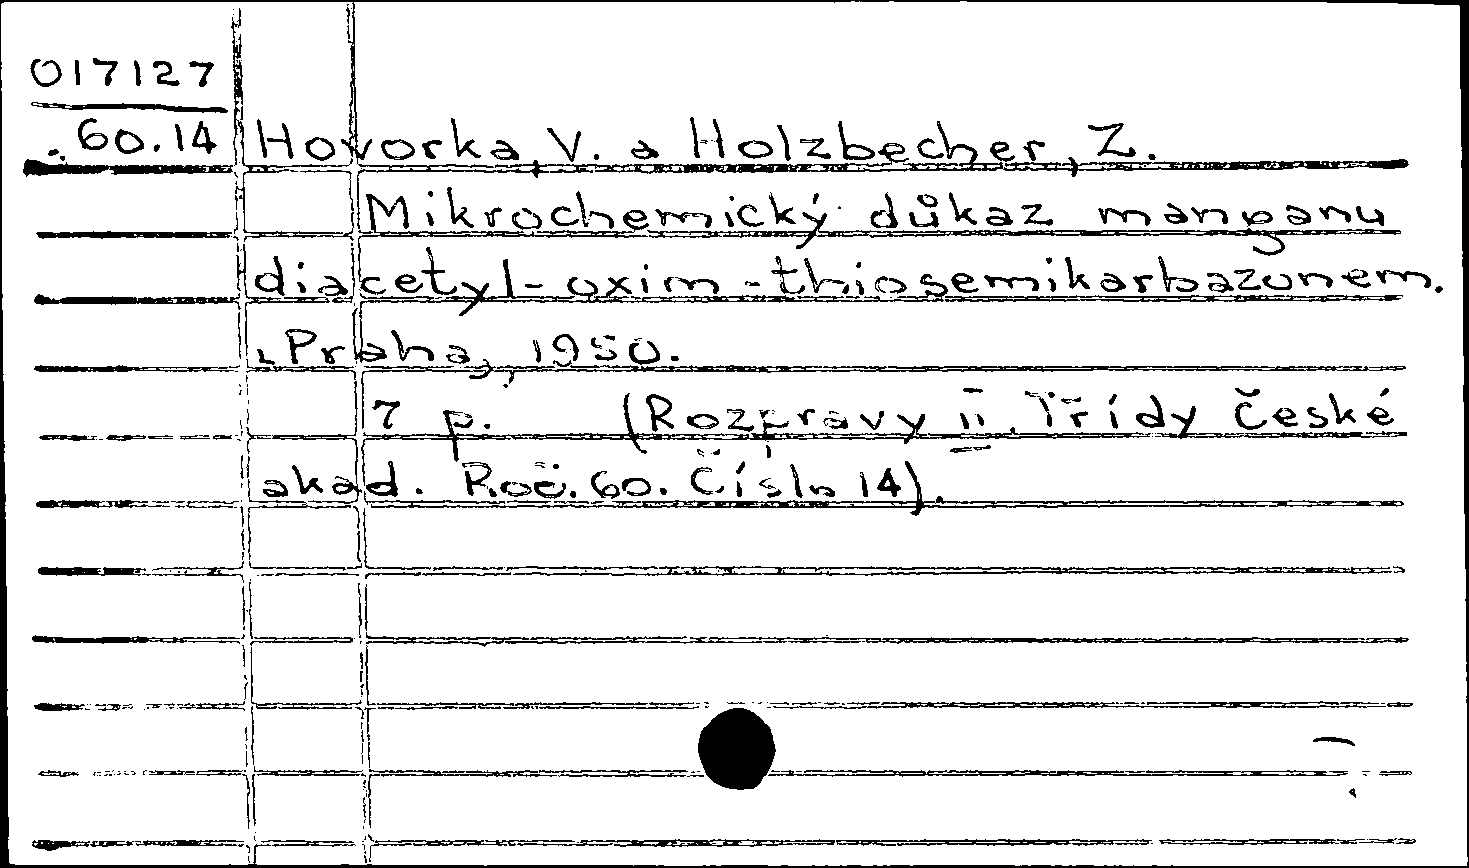 017127
60.14 Hovorka, V. a Holzbecher, Z.
Mikrochemický důkaz manganu
diacetyl-oxim-thiosemikarbazonem.
Praha, 1950.
7 p. (Rozpravy II. Třídy České
akad. Roč. 60. Číslo 14).